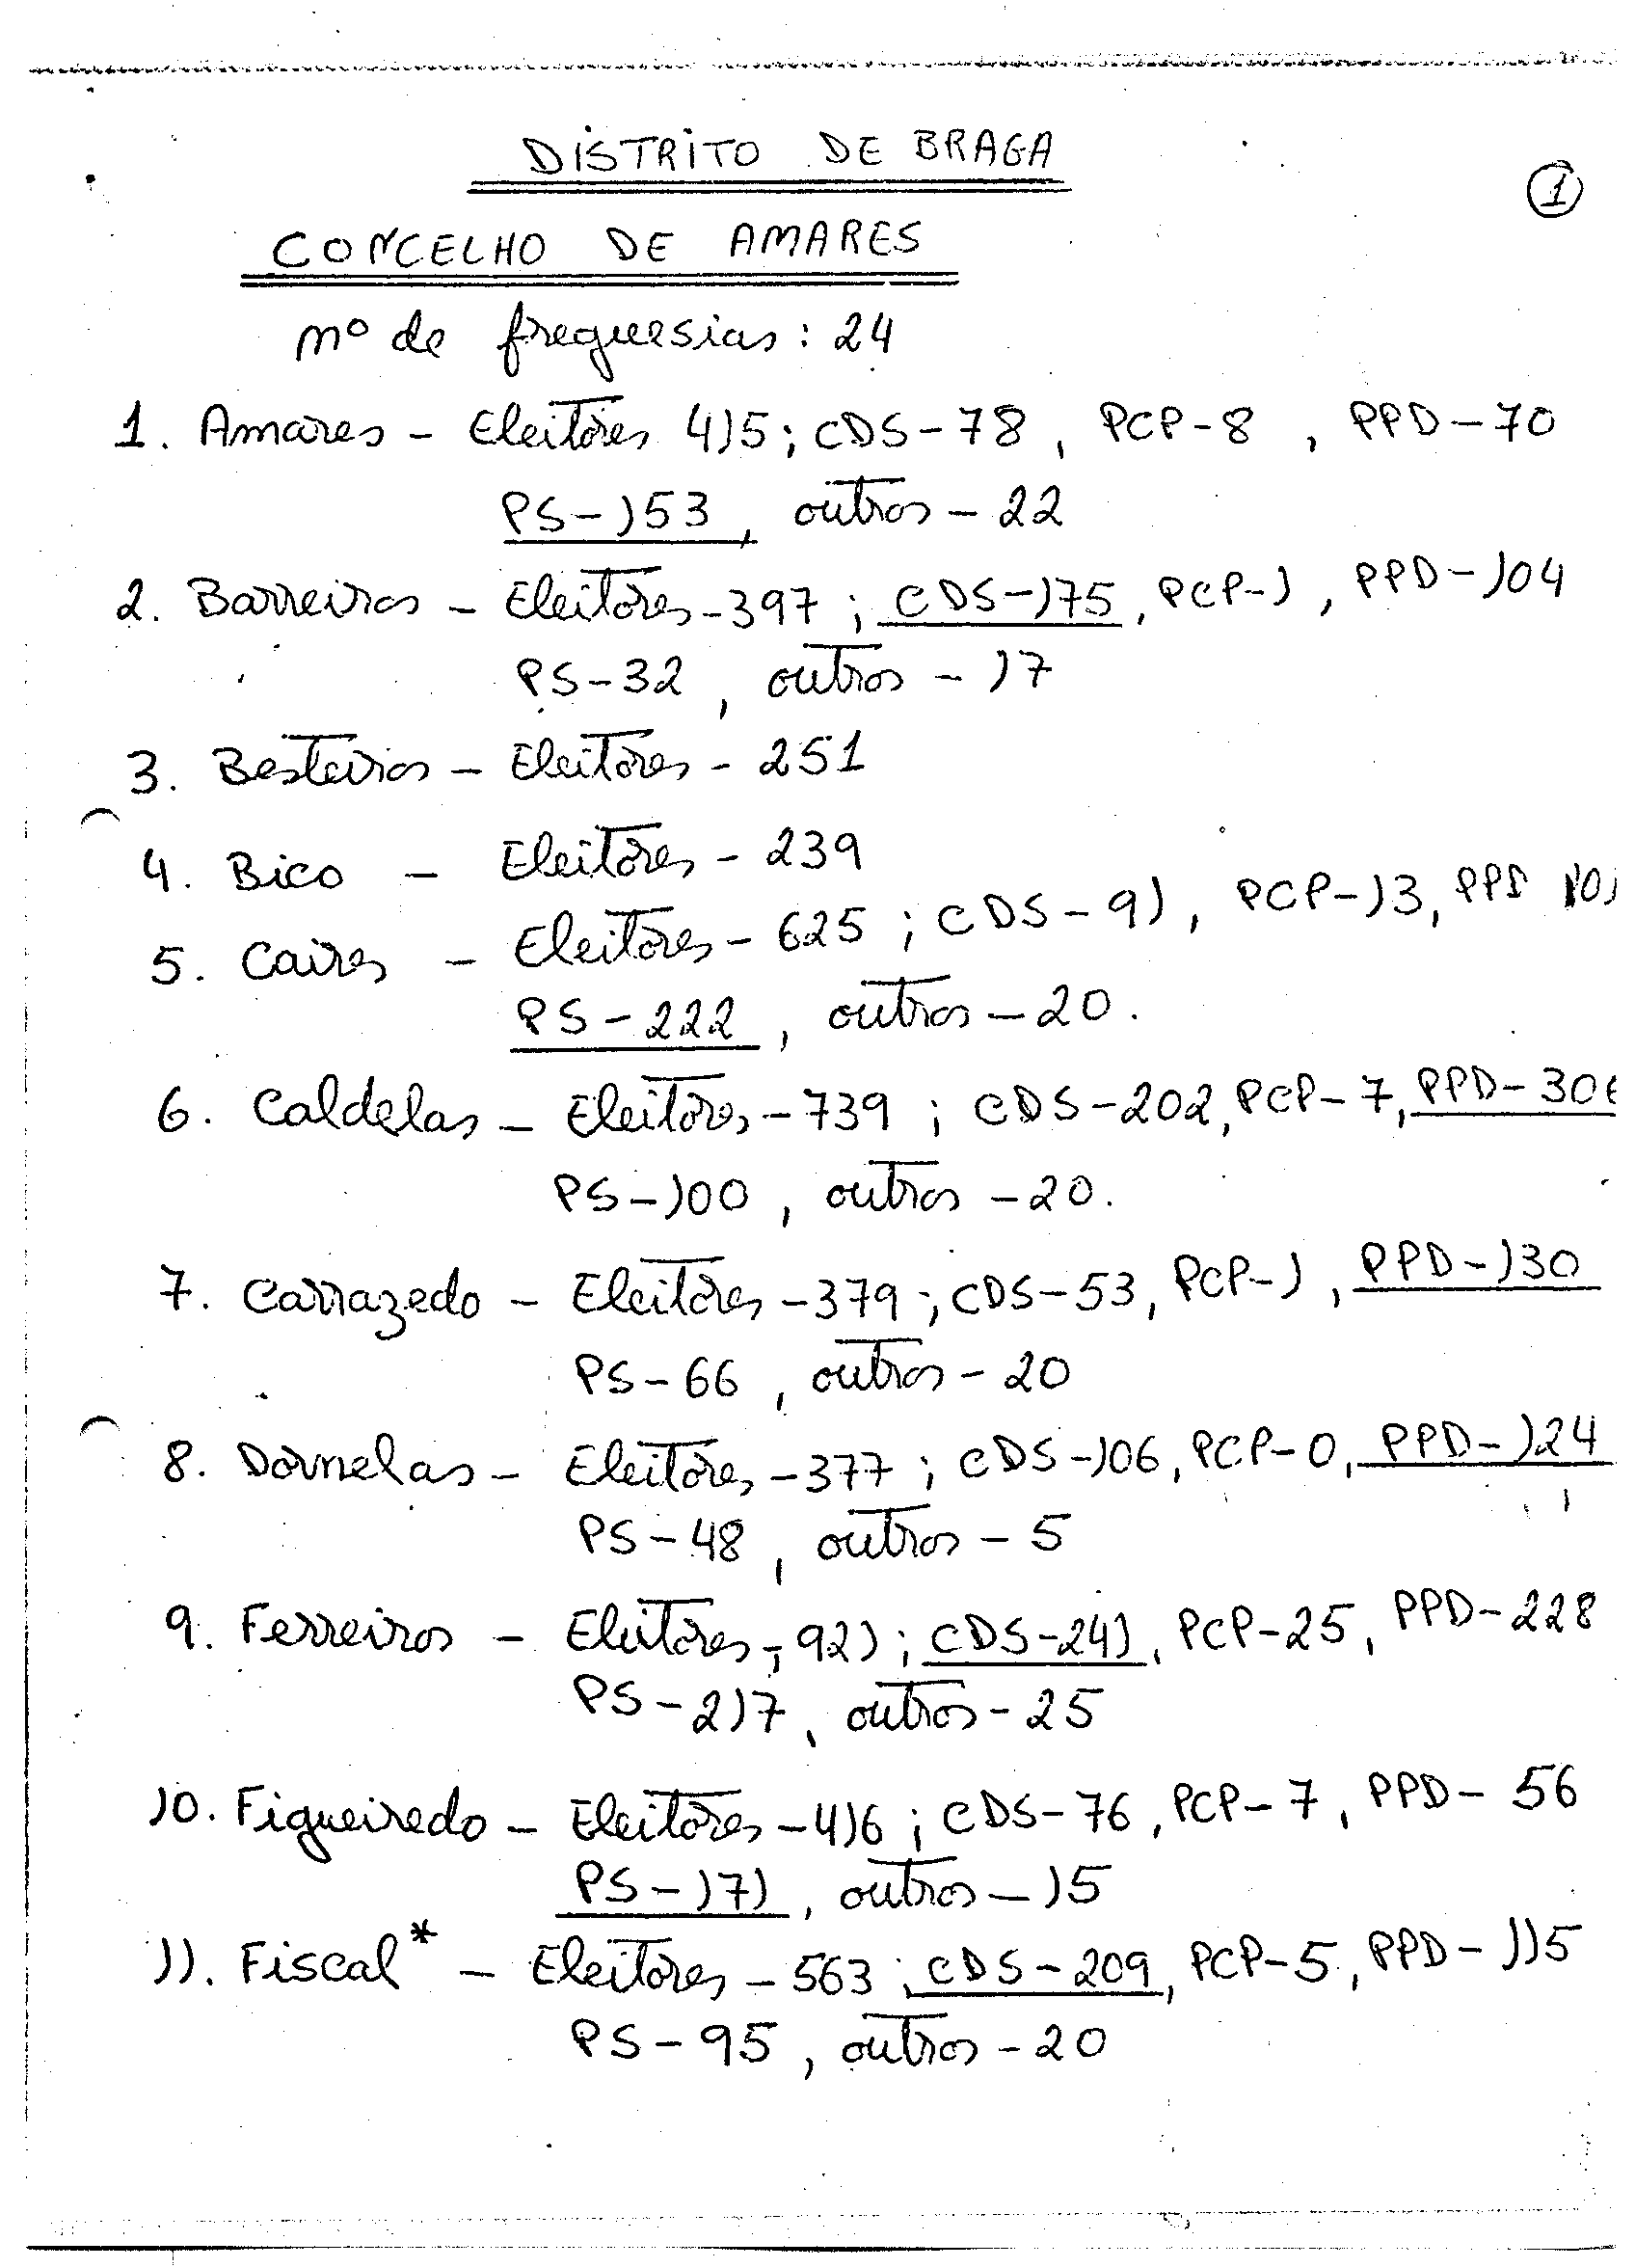 DISTRITO DE BRAGA
1
CONCELHO DE AMARES
nº de freguesias: 24
1. Amares - Eleitores 415; CDS-78, PCP-8, PPD-70
PS-153, outros-22
2. Barreiros - Eleitores-397; CDS-175, PCP-1, PPD-104
PS-32, outros-17
3. Besteiros - Eleitores-251
4. Bico - Eleitores-239
5. Caires - Eleitores-625; CDS-91, PCP-13, PPD 101
PS-222, outros-20.
6. Caldelas - Eleitores-739; CDS-202, PCP-7, PPD-306
PS-100, outros-20.
7. Carrazedo - Eleitores-379; CDS-53, PCP-1, PPD-130
PS-66, outros-20
8. Dornelas - Eleitores-377; CDS-106, PCP-0, PPD-124
PS-48, outros-5
9. Ferreiros - Eleitores-921; CDS-241, PCP-25, PPD-228
PS-217, outros-25
10. Figueiredo - Eleitores-416; CDS-76, PCP-7, PPD-56
PS-171, outros-15
11. Fiscal* - Eleitores-563; CDS-209, PCP-5, PPD-115
PS-95, outros-20